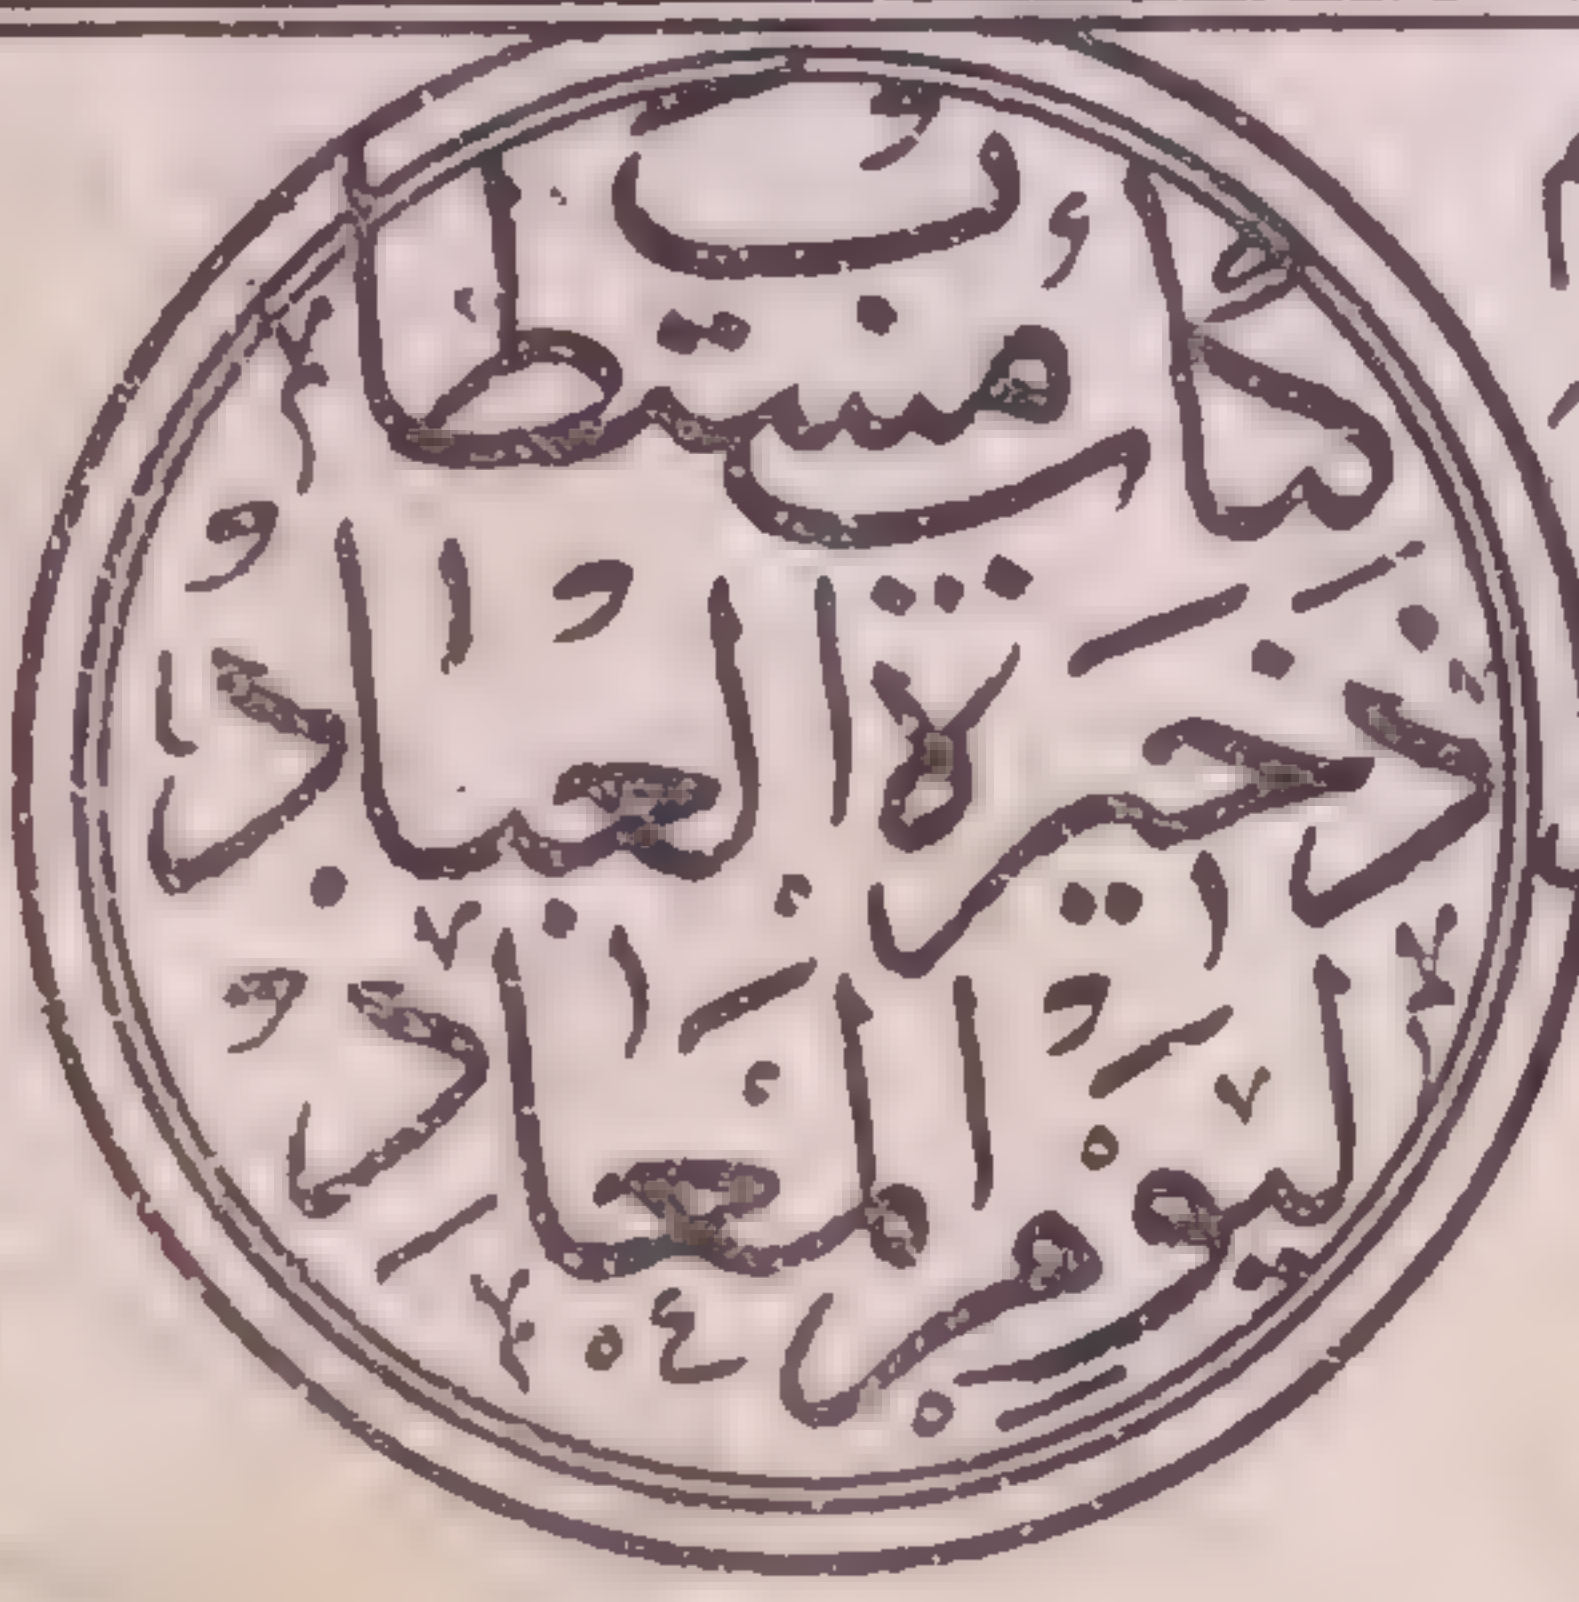 كتاب مستطاب
ذخيرة العباد
ليوم المعاد